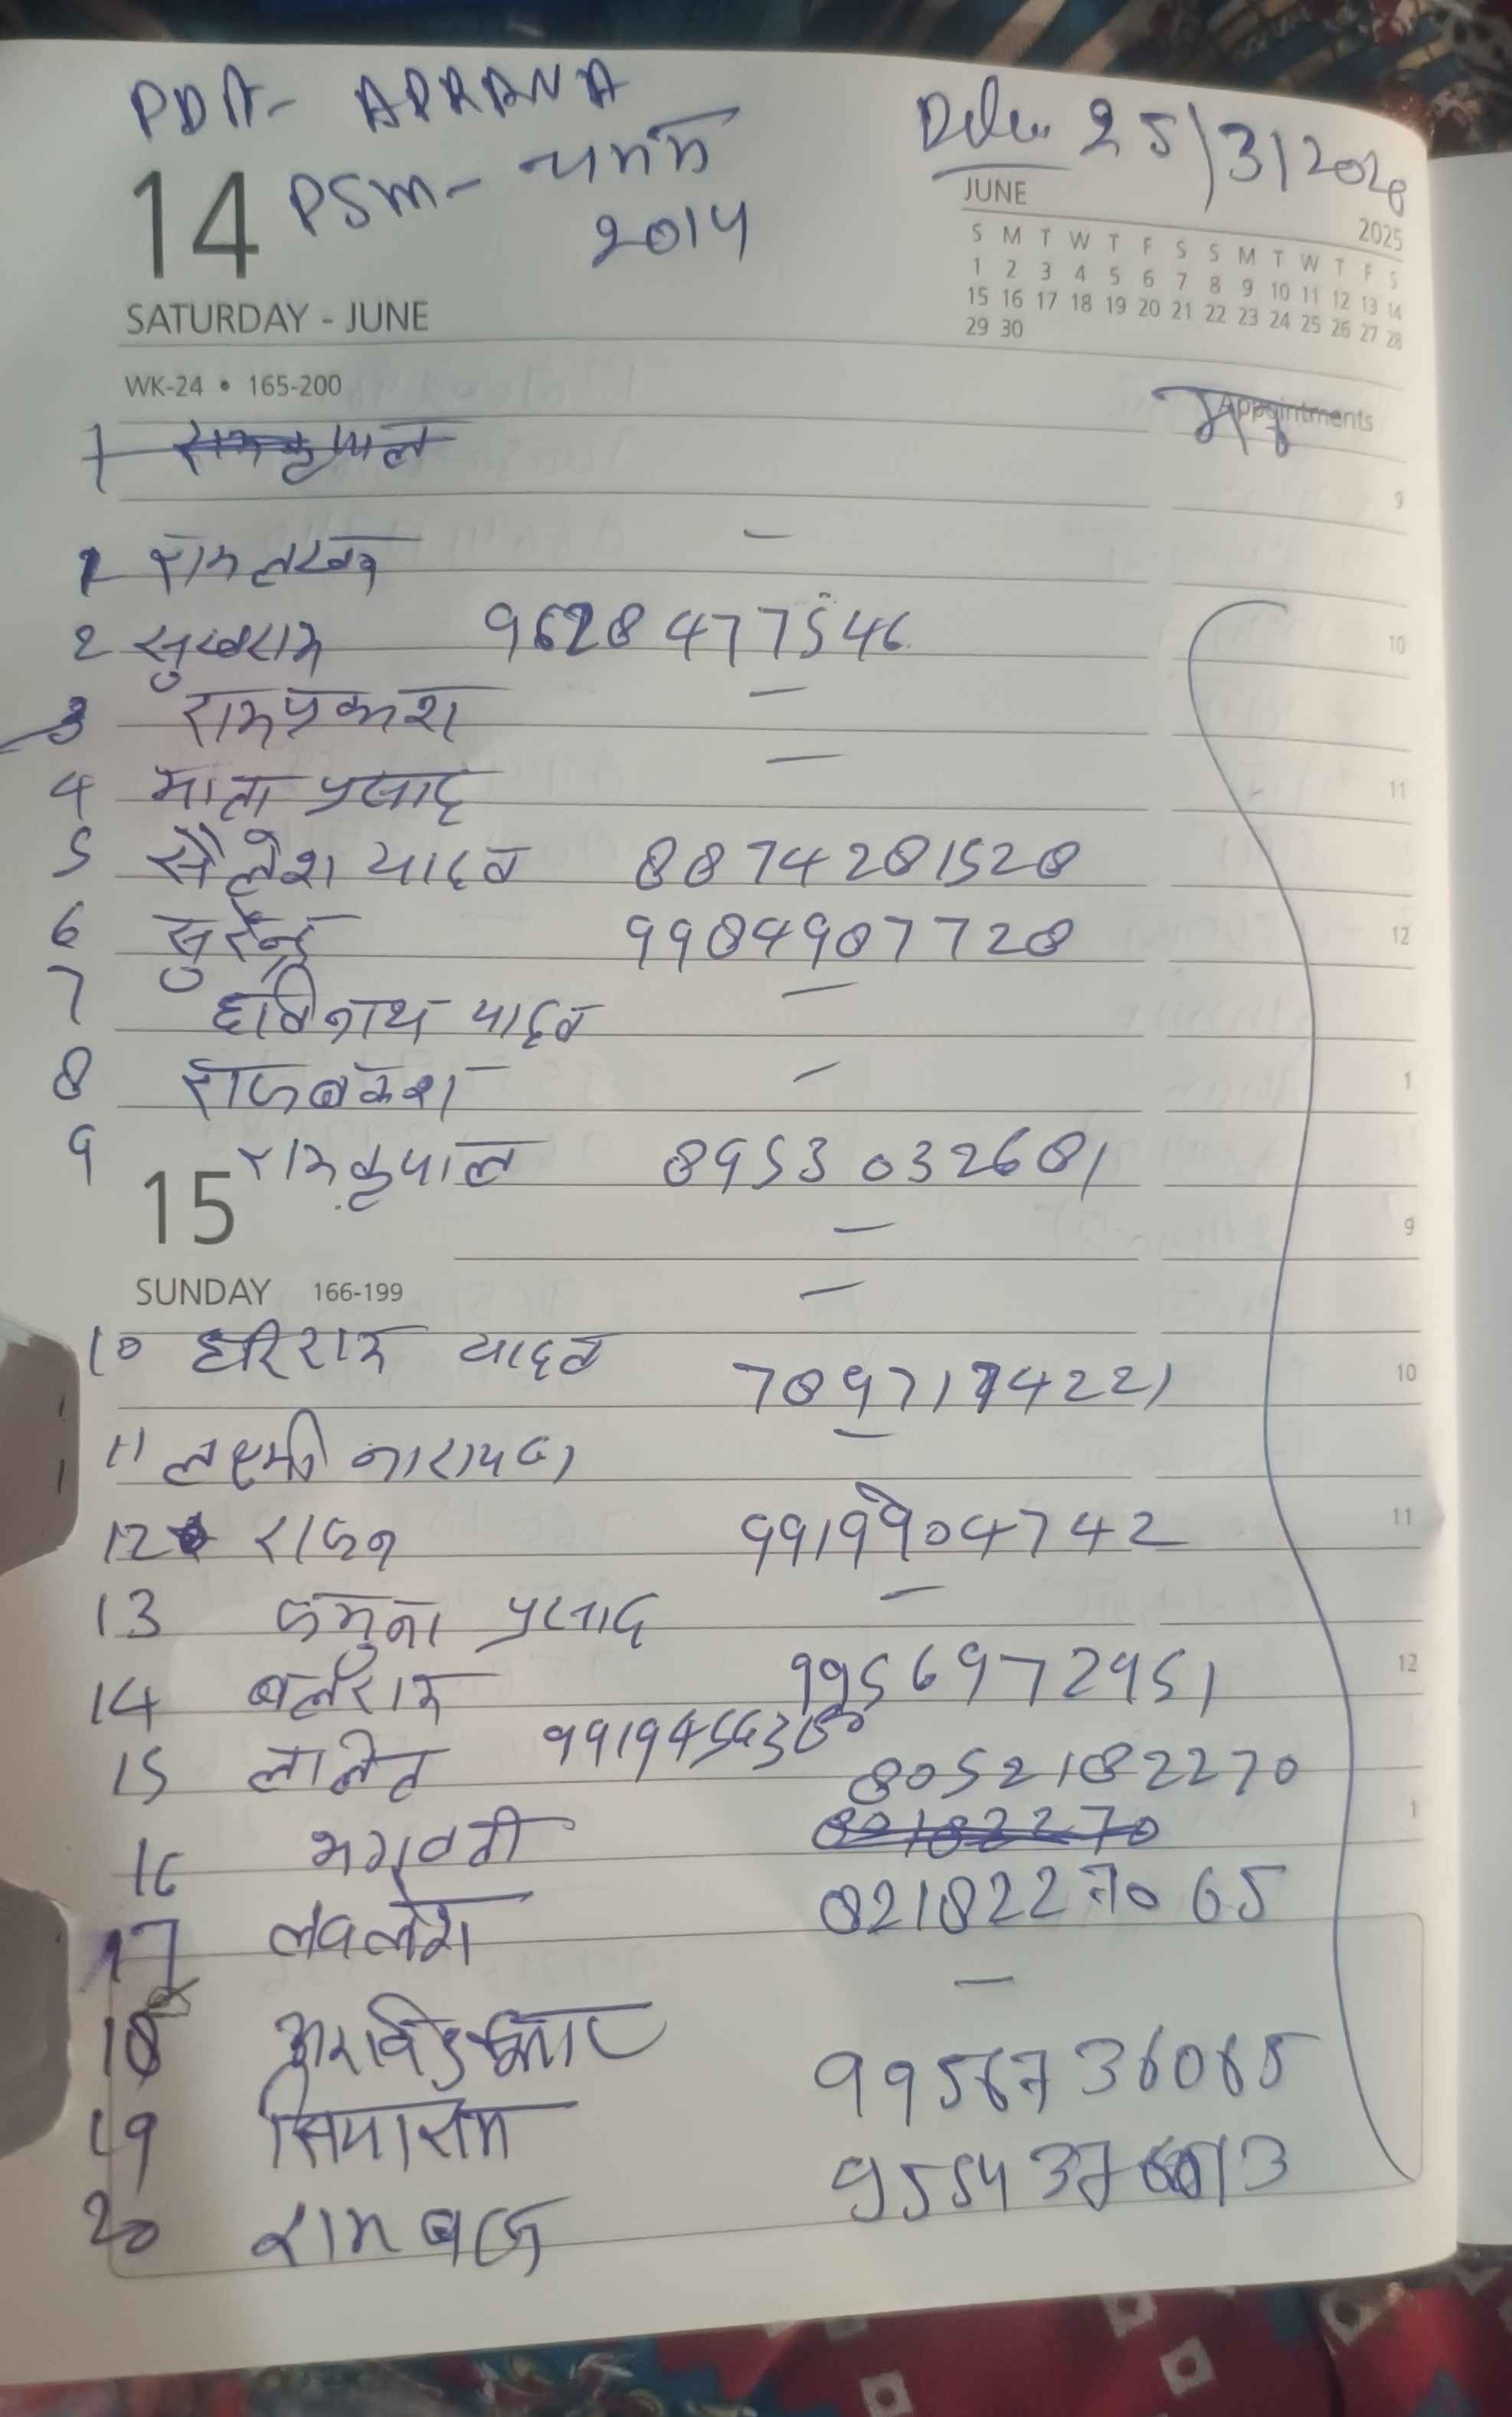 PDA- APRANA
14 PSM- 
2014
25/3/2026
JUNE 2025
S M T W T F S S M T W T F S
1 2 3 4 5 6 7 8 9 10 11 12 13 14
15 16 17 18 19 20 21 22 23 24 25 26 27 28
29 30
SATURDAY - JUNE
WK-24 • 165-200
Appointments
1 रामकृपाल
9
1 रामलखन -
2 सुखराम 9628477546
10
3 रामप्रकाश -
4 माता प्रसाद -
11
5 सैलेश यादव 8874281528
6 सुरेन्द्र 9984907728
12
7 हरिनाथ यादव -
8 राजबकश -
1
9 रामकृपाल 8953032681
15 -
9
SUNDAY 166-199 -
10 हरिराम यादव 7897174221
10
11 लक्ष्मी नारायण -
12 राजन 9919904742
11
13 जमुना प्रसाद -
14 बलराम 9956972951
12
15 9919456360 8052182270
16 भगवती 82182270
1
17 लवलेश 8218227065
18 अरविंद कुमार -
19 सियाराम 9956736065
20 राम बरन